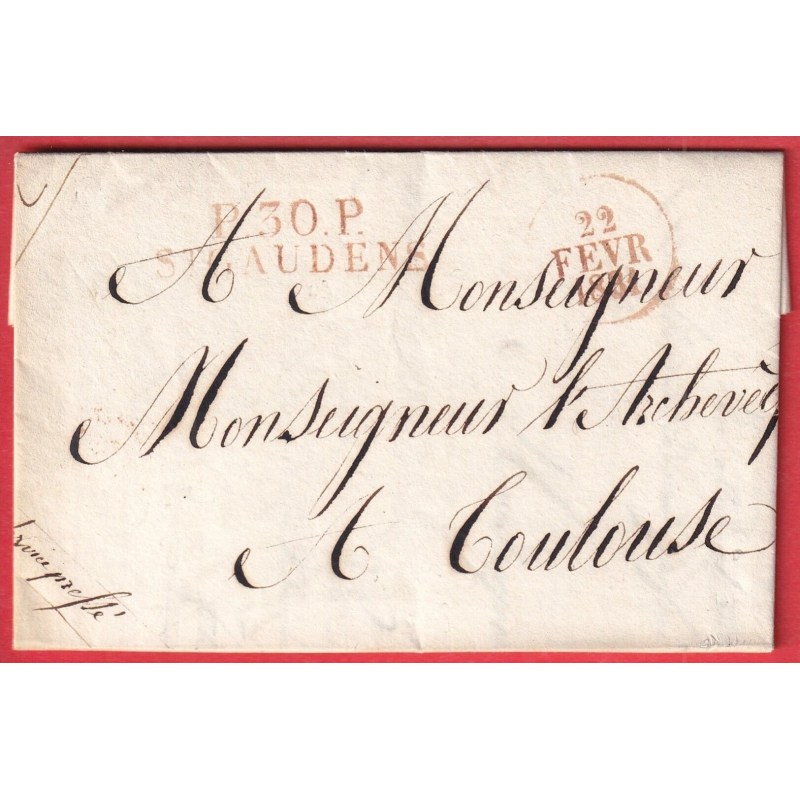 P.30.P.
ST. GAUDENS
22
FEVR
A Monseigneur
Monseigneur l'Archevêq
A Toulouse
pressé